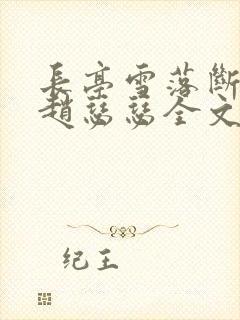 長亭雪落斷
趙慈慈全文
纪王